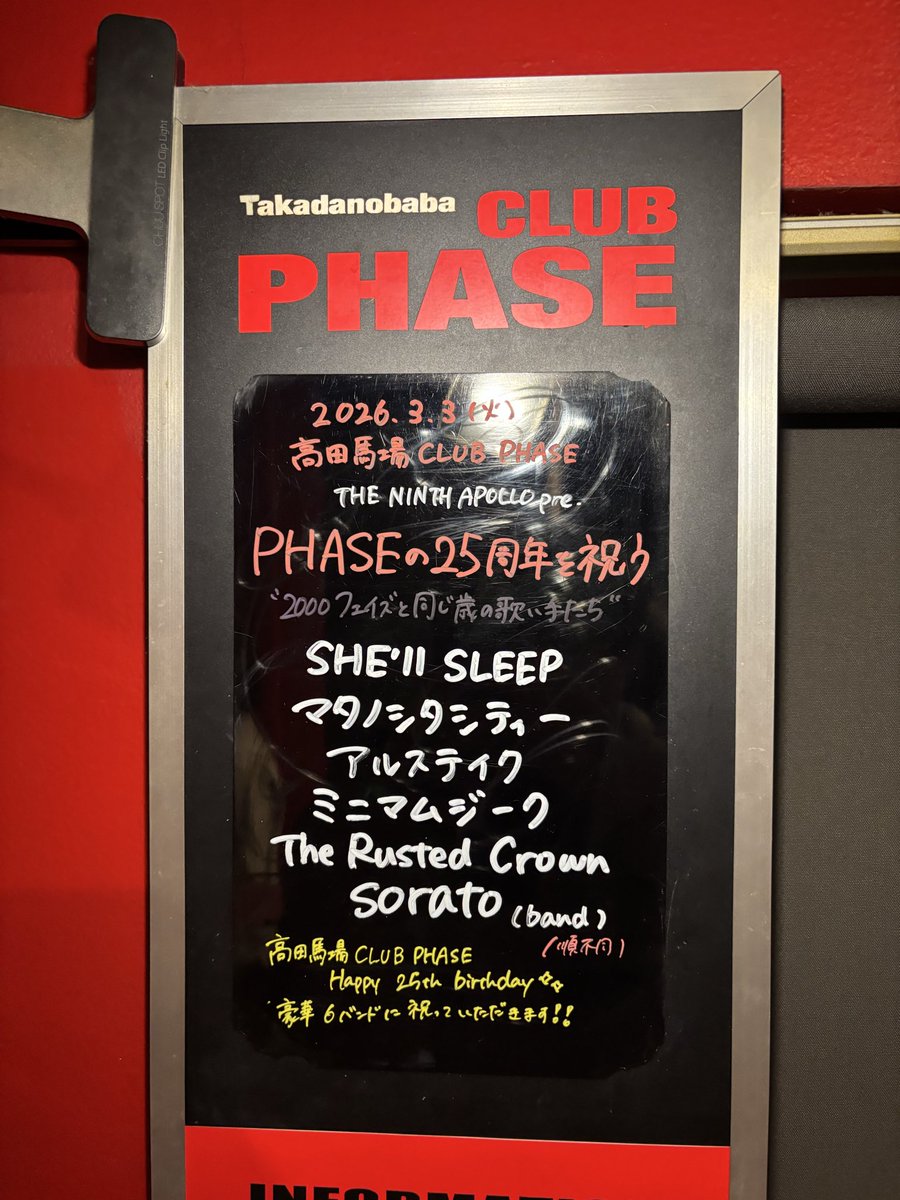 CHUU SPOT LED Clip Light
Takadanobaba CLUB
PHASE
2026.3.3(火)
高田馬場 CLUB PHASE
THE NINTH APOLLO pre.
PHASEの25周年を祝う
"2000フェイズと同じ歳の歌い手たち"
SHE'll SLEEP
マタノシタシティー
アルステイク
ミニマムジーク
The Rusted Crown
sorato (band)
(順不同)
高田馬場 CLUB PHASE
Happy 25th birthday
豪華6バンドに祝っていただきます!!